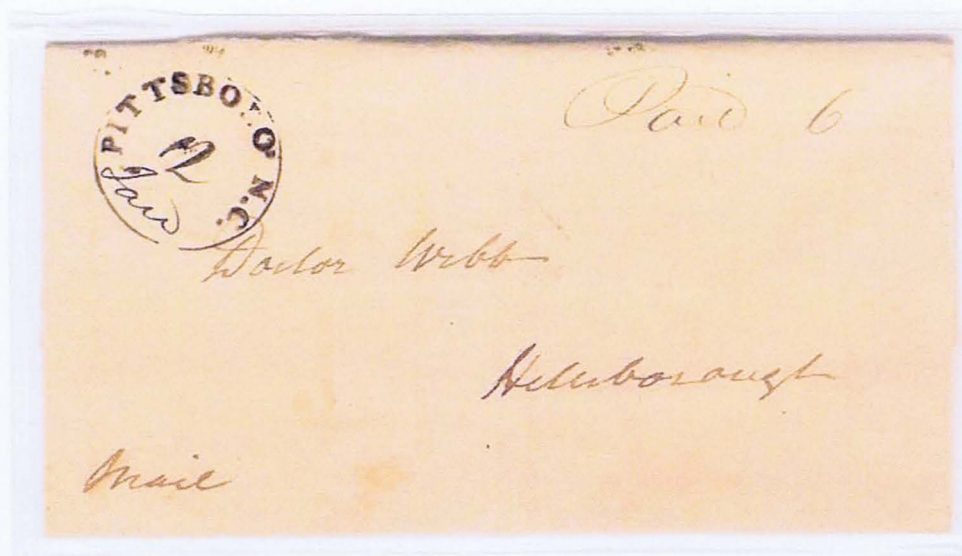 PITTSBORO' N.C.
12
Jan
Paid 6
Doctor Webb
Hillsborough
Mail